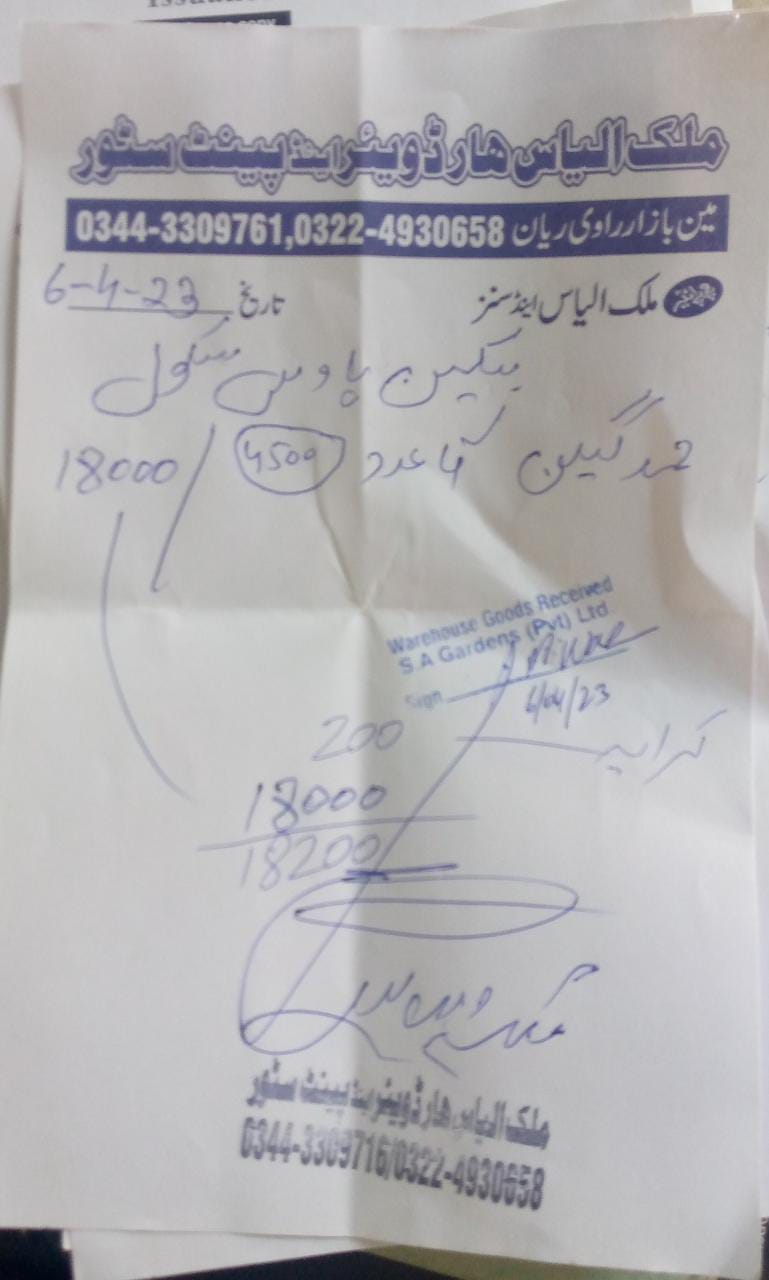 ملک الیاس ھارڈویئر اینڈ پینٹ سٹور
مین بازار راوی ریان 0344-3309761,0322-4930658
ملک الیاس اینڈ سنز
تاریخ 6-4-23
بیکن ہاوس سکول
گیلن 4 عدد 4500 / 18000
Warehouse Goods Received
S.A Gardens (Pvt) Ltd.
Sign
6/04/23
کرایہ 200
18000
18200
ملک الیاس ھارڈویئر اینڈ پینٹ سٹور
0344-3309716/0322-4930658